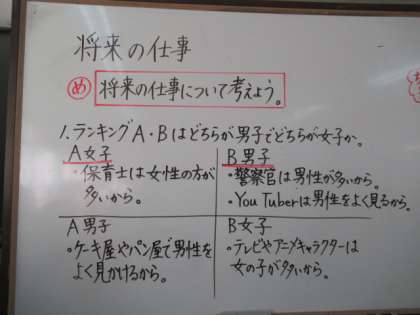 将来の仕事
め 将来の仕事について考えよう。
1.ランキングA・Bはどちらが男子でどちらが女子か。
A女子
・保育士は女性の方が
多いから。
B男子
・警察官は男性が多いから。
・YouTuberは男性をよく見るから。
A男子
・ケーキ屋やパン屋で男性を
よく見かけるから。
B女子
・テレビやアニメキャラクターは
女の子が多いから。